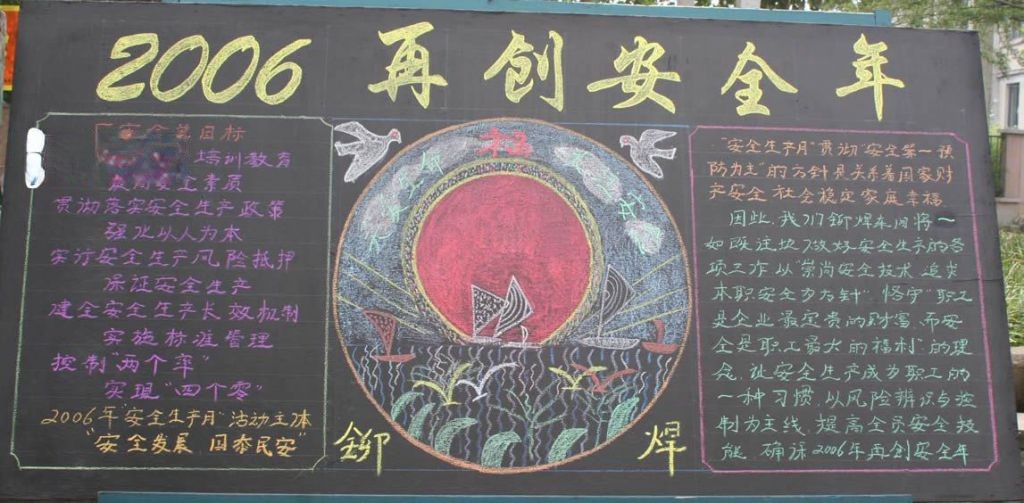 2006 再创安全年
安全总目标
培训教育
安全素质
贯彻落实安全生产政策
强化以人为本
实行安全生产风险抵押
保证安全生产
建全安全生产长效机制
实施标准管理
控制"两个率"
实现"四个零"
2006年"安全生产月"活动主体
"安全发展 国泰民安"
铆
焊
"安全生产月"贯彻"安全第一预
防为主"的方针是关系着国家财
产安全 社会稳定 家庭幸福
因此,我们铆焊车间将一
如既往地了做好安全生产的各
项工作 以"崇尚安全技术 追求
本职安全为方针" 恪守"职工
是企业最宝贵的财富,而安
全是职工最大的福利"的理
念,让安全生产成为职工的
一种习惯,以风险辨识与控
制为主线,提高全员安全技
能,确保2006年再创安全年